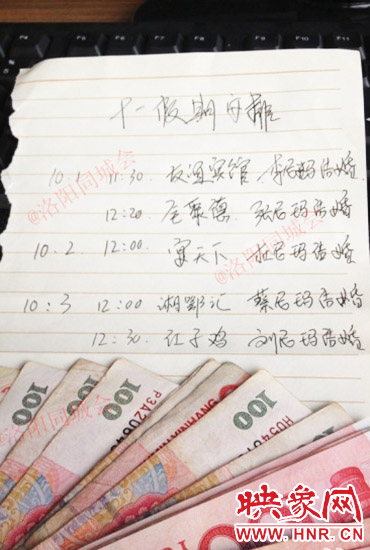 十一假期安排
10.1 11:30. 友谊宾馆 李尼玛结婚
12:20. 全聚德 张尼玛结婚
10.2 12:00. 宴天下 杜尼玛结婚
10:3 12:00 湘鄂汇 蔡尼玛结婚
12:30. 红子鸡 刘尼玛结婚
@洛阳同城会
@洛阳同城会
@洛阳同城会
100
100
100
100
映象网
WWW.HNR.CN